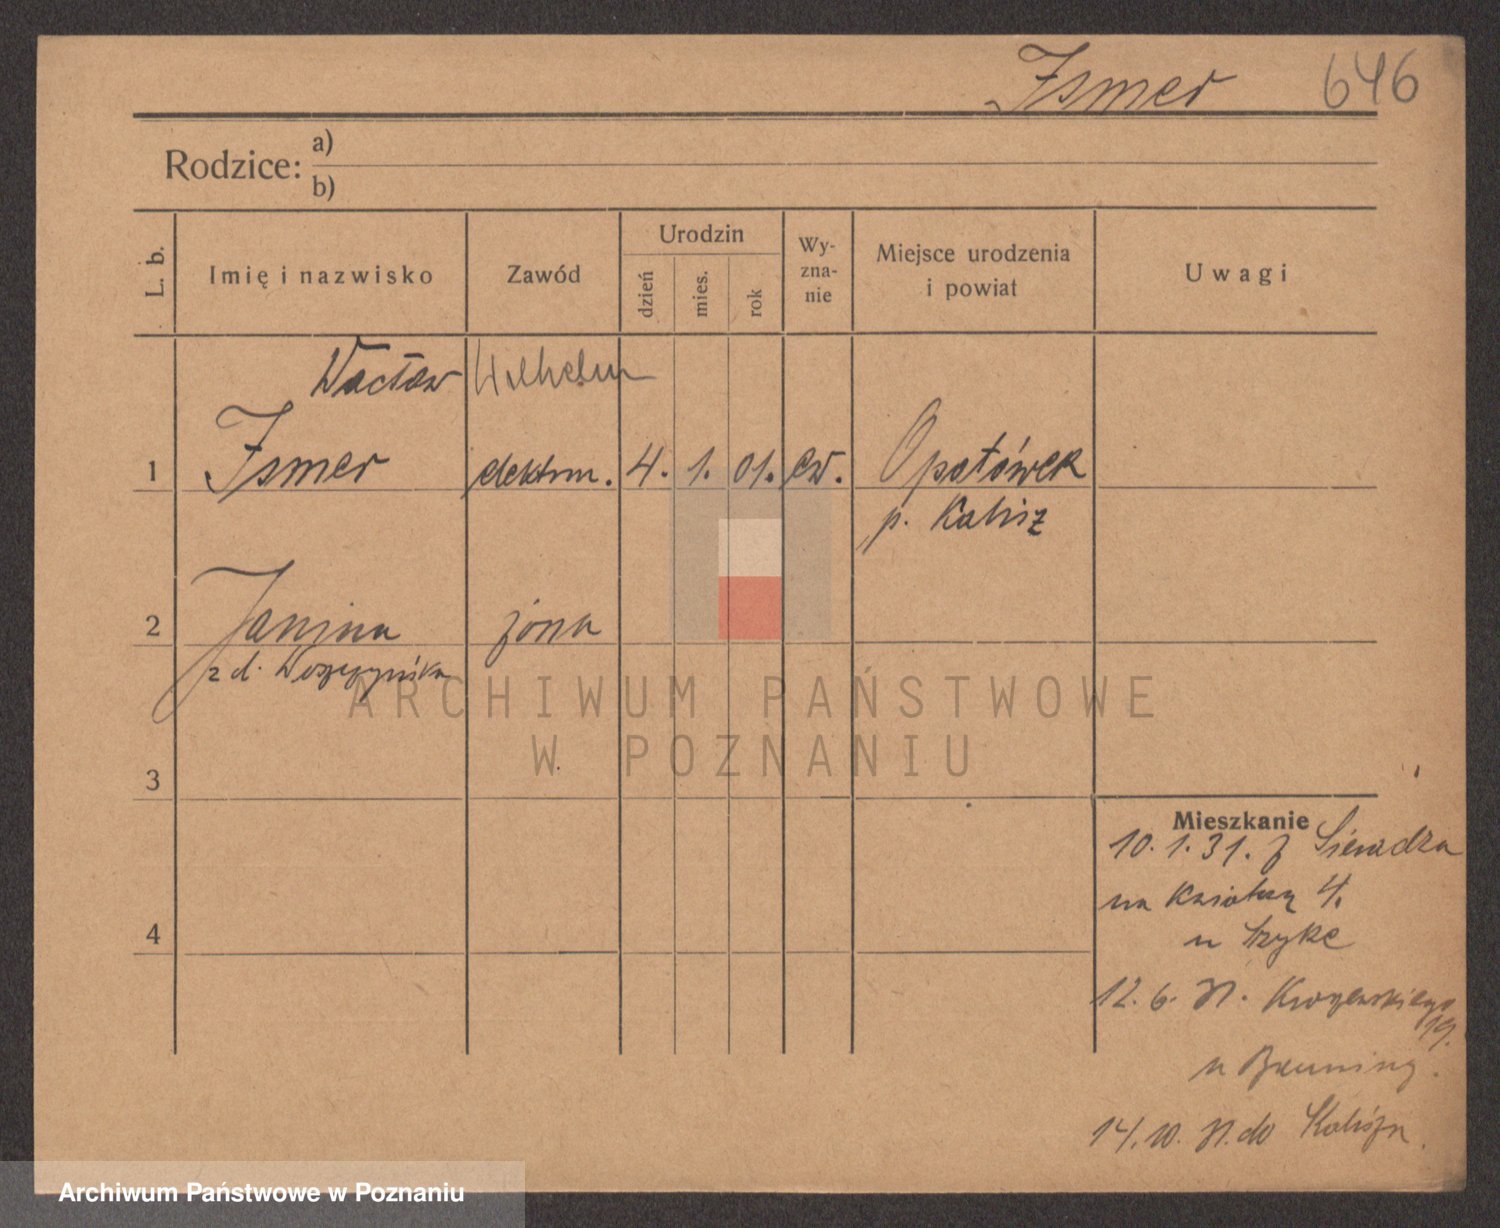 Ismer 646
Rodzice: a)
b)
L. b.
Imię i nazwisko
Zawód
Urodzin
dzień
mies.
rok
Wy-
zna-
nie
Miejsce urodzenia
i powiat
Uwagi
Wacław Wilhelm
1 Ismer elektrm. 4. 1. 01. ew. Opatówek
p. Kalisz
2 Janina żona
z d.
3
4
Mieszkanie
10.1.31. z Sieradza
na 4.
u
12.6. 31. 19.
u
14.10. 31. do Kalisza
ARCHIWUM PAŃSTWOWE
W POZNANIU
Archiwum Państwowe w Poznaniu